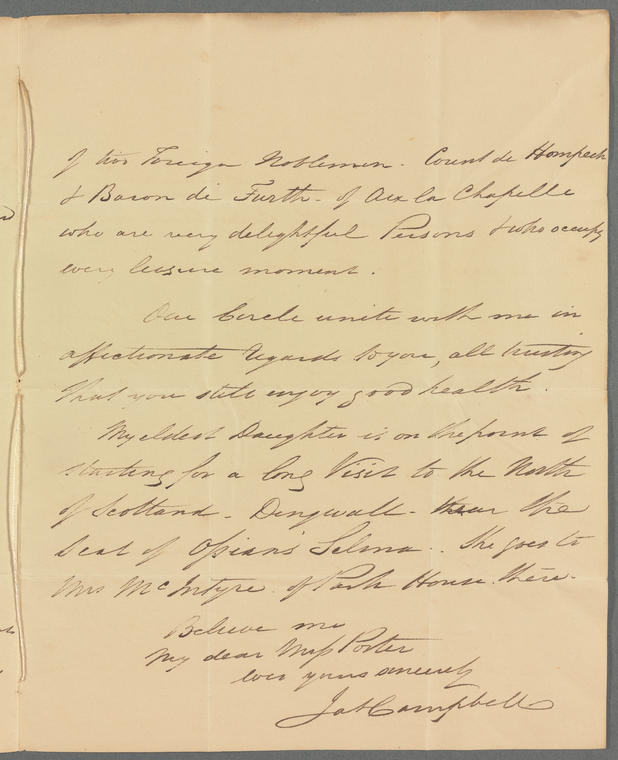 of two Foreign Noblemen - Count de Hompech
& Baron de Furth - of Aix la Chapelle
who are very delightful Persons & who occupy
every leisure moment.
Our Circle unite with me in
affectionate regards to you, all trusting
that you still enjoy good health.
My eldest Daughter is on the point of
starting for a long Visit to the North
of Scotland - Dingwall - near the
Seat of Ossian's Selma .. She goes to
Mrs McIntyre of Park House there.
Believe me
My dear Miss Porter
ever yours sincerely
Jas Campbell